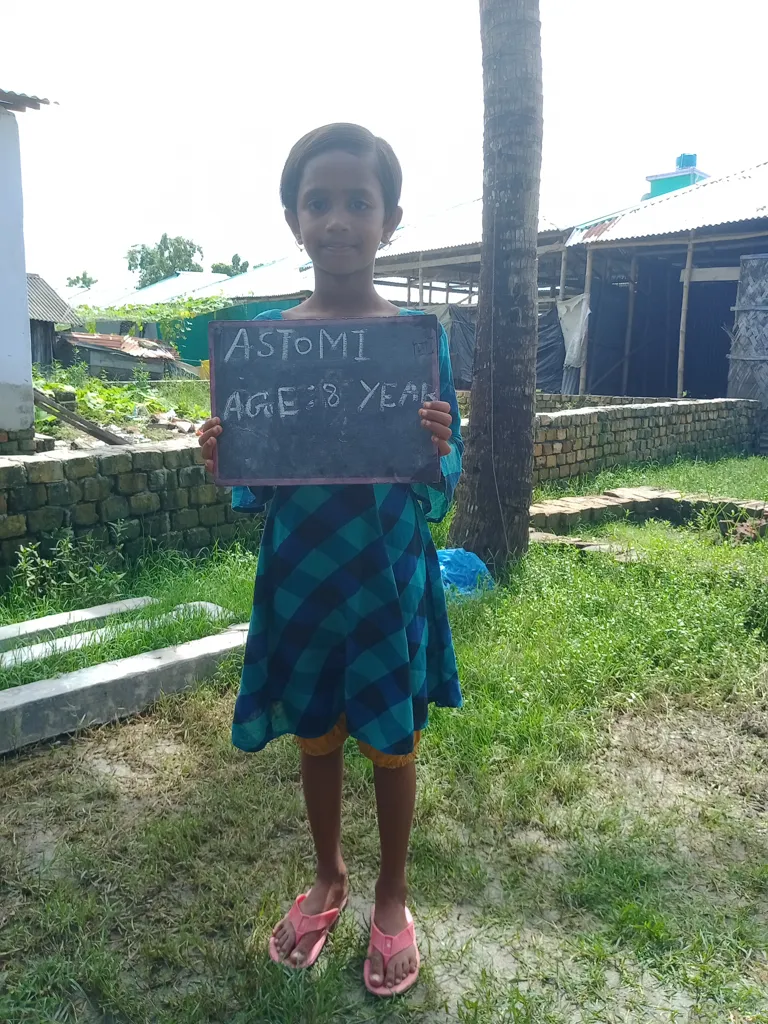 ASTOMI
AGE:8 YEAR